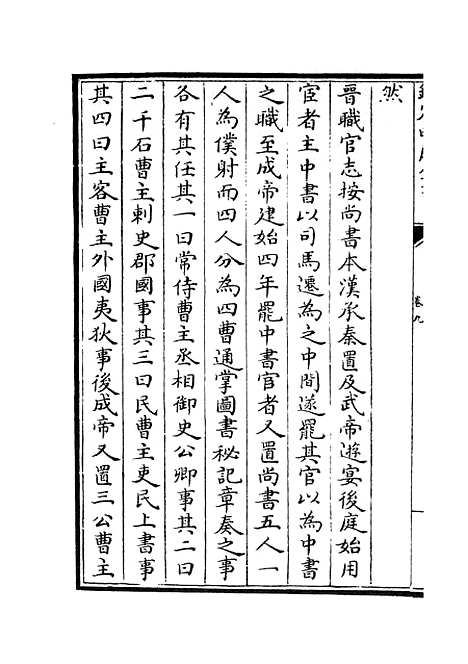 然
晉職官志按尚書本漢承秦置及武帝遊宴後庭始用
宦者主中書以司馬遷為之中間遂罷其官以為中書
之職至成帝建始四年罷中書官者又置尚書五人一
人為僕射而四人分為四曹通掌圖書秘記章奏之事
各有其任其一曰常侍曹主丞相御史公卿事其二曰
二千石曹主刺史郡國事其三曰民曹主吏民上書事
其四曰主客曹主外國夷狄事後成帝又置三公曹主
卷九